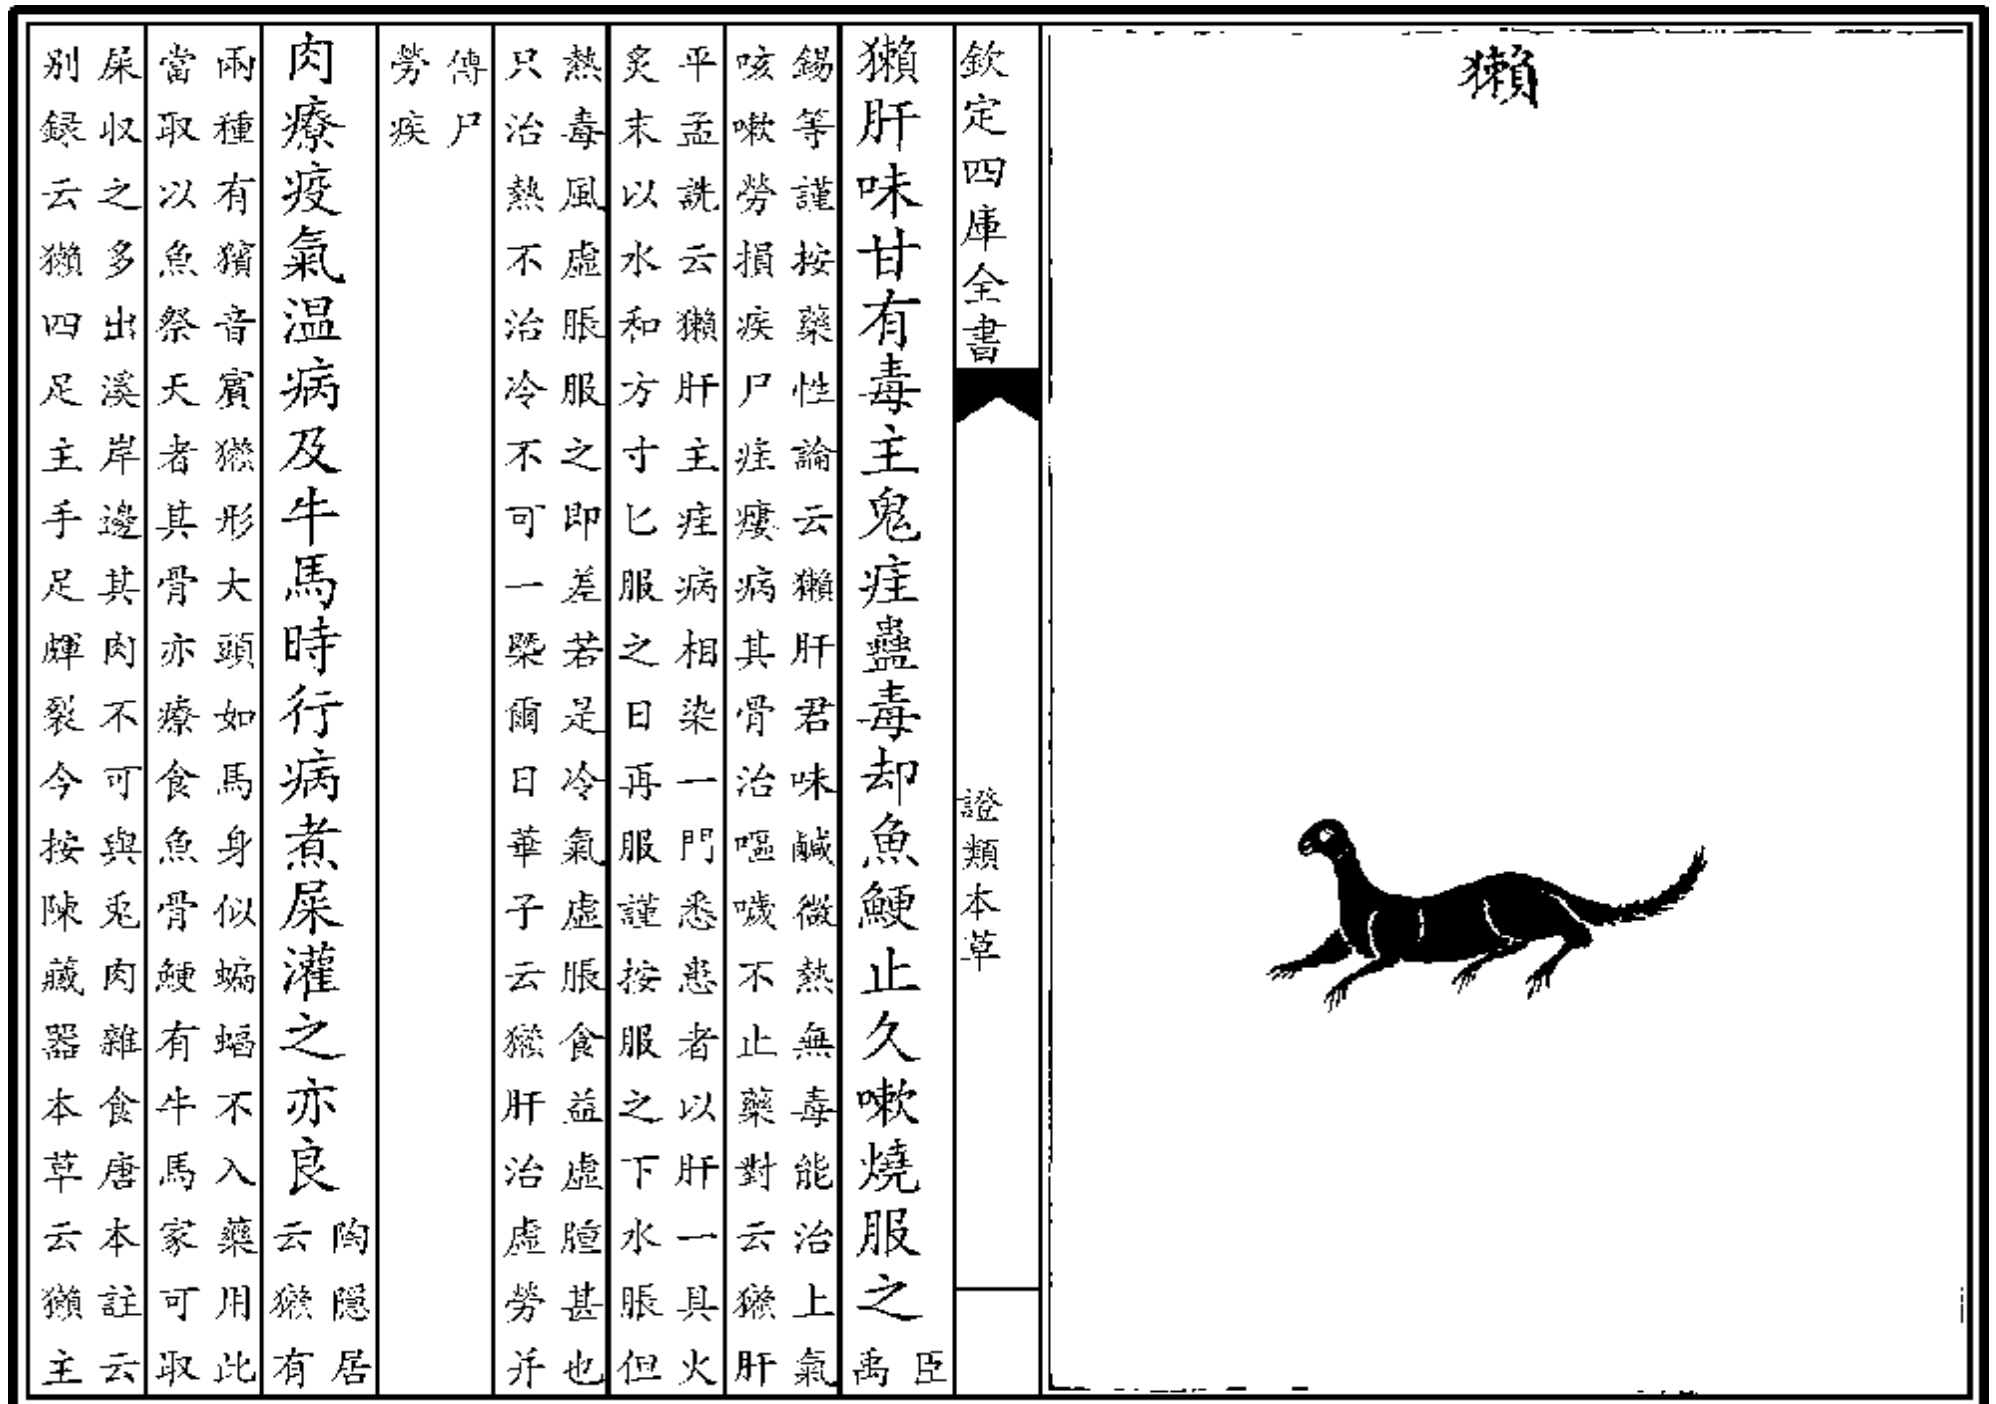 獺
欽定四庫全書
證類本草
獺肝味甘有毒主鬼疰蠱毒却魚鯁止久嗽燒服之
臣
禹
錫等謹按藥性論云獺肝君味鹹微熱無毒能治上氣
咳嗽勞損疾尸疰瘻病其骨治嘔噦不止藥對云獺肝
平孟詵云獺肝主疰病相染一門悉患者以肝一具火
炙末以水和方寸匕服之日再服謹按服之下水脹但
熱毒風虛脹服之即差若是冷氣虛脹食益虛腫甚也
只治熱不治冷不可一槩爾日華子云獺肝治虛勞并
傳尸
勞疾
肉療疫氣温病及牛馬時行病煮屎灌之亦良
陶隱居
云獺有
兩種有獱音賓獺形大頭如馬身似蝙蝠不入藥用此
當取以魚祭天者其骨亦療食魚骨鯁有牛馬家可取
屎収之多出溪岸邊其肉不可與兎肉雜食唐本註云
别録云獺四足主手足皹裂今按陳藏器本草云獺主